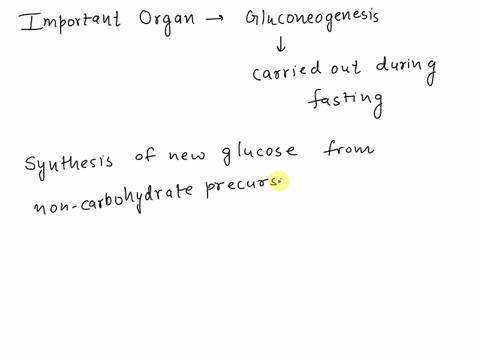 Important Organ → Gluconeogenesis
↓
carried out during
fasting
Synthesis of new glucose from
non-carbohydrate precurs